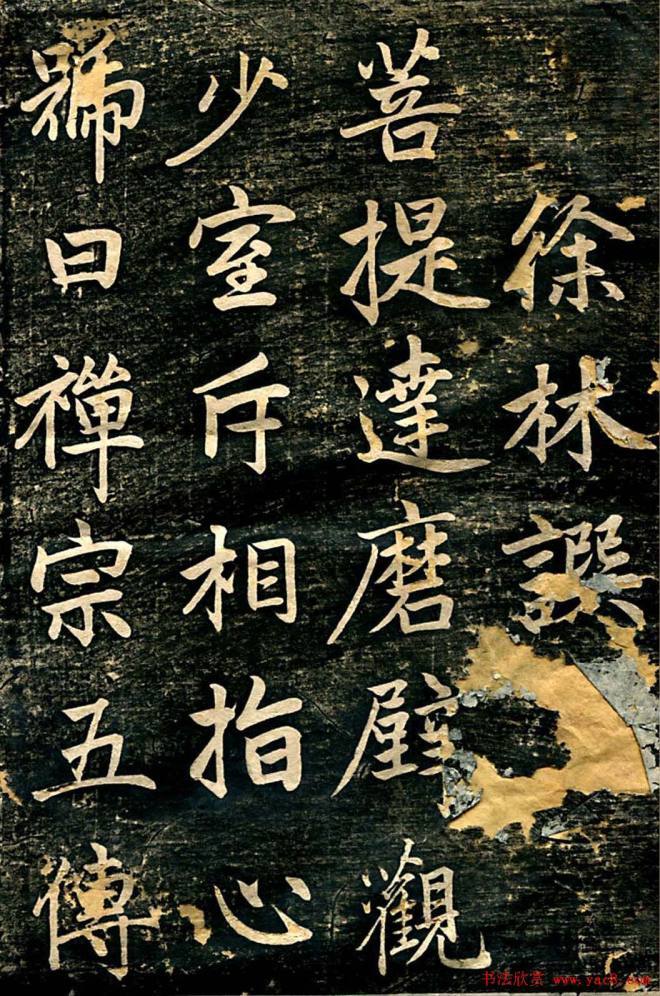 徐林譔
菩提達磨壁觀
少室斥相指心
號曰禪宗五傳
书法欣赏 www.yac8.com